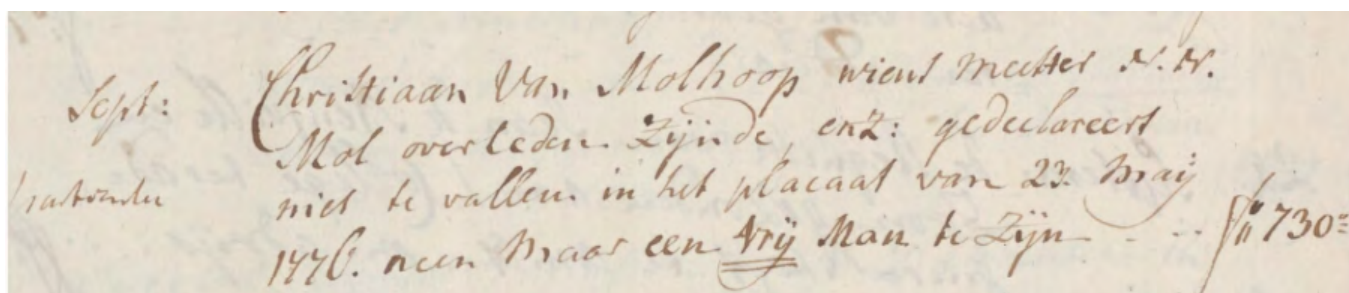 Sept:
Christiaan Van Molhoop wiens meester N. N.
Mol overleden Zijnde, enz: gedeclareert
niet te vallen in het placaat van 23. Maij
1776. neen maar een vrij Man te Zijn - - - ƒ" 730=